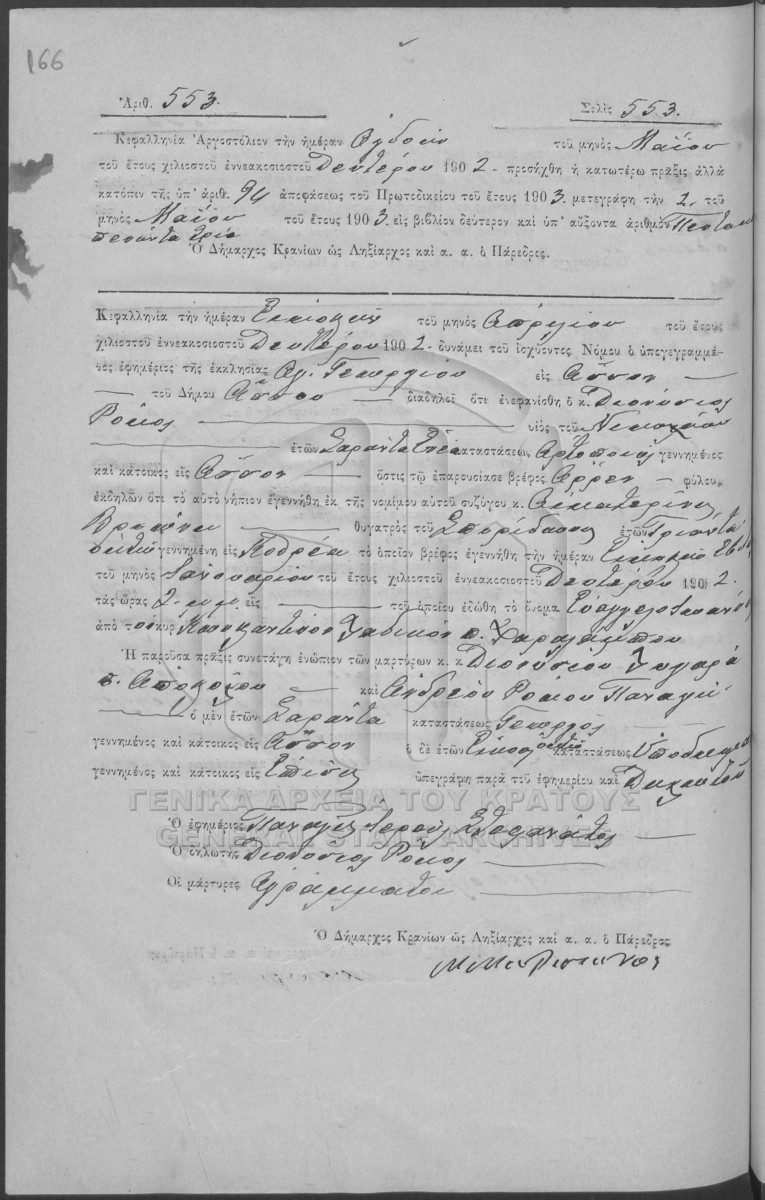 166
Ἀριθ. 553. Σελὶς 553.
Κεφαλληνία Ἀργοστόλιον τὴν ἡμέραν Ὀγδόην τοῦ μηνὸς Μαΐου
τοῦ ἔτους χιλιοστοῦ ἐννεακοσιοστοῦ Δευτέρου 1902 - προσήχθη ἡ κατωτέρω πρᾶξις ἀλλὰ
κατόπιν τῆς ὑπ' ἀριθ. 94 ἀποφάσεως τοῦ Πρωτοδικείου τοῦ ἔτους 1903. μετεγράφη τὴν 2. τοῦ
μηνὸς Μαΐου τοῦ ἔτους 1903. εἰς βιβλίον δεύτερον καὶ ὑπ' αὔξοντα ἀριθμὸν Πεντακ
πενήντα τρία
Ὁ Δήμαρχος Κρανίων ὡς Ληξίαρχος καὶ α. α. ὁ Πάρεδρος.
Κεφαλληνία τὴν ἡμέραν Εἰκοστὴν τοῦ μηνὸς Ἀπριλίου τοῦ ἔτους
χιλιοστοῦ ἐννεακοσιοστοῦ Δευτέρου 1902 - δυνάμει τοῦ ἰσχύοντος Νόμου ὁ ὑπογεγραμμέ-
νος ἐφημέριος τῆς ἐκκλησίας Ἁγ. Γεωργίου εἰς Ἄσσον
τοῦ Δήμου Ἄσσου διαδηλοῖ ὅτι ἐνεφανίσθη ὁ κ. Διονύσιος
Ρόκος υἱὸς τοῦ Νικολάου
ἐτῶν Σαράντα καταστάσεως Ἀρτοποιός γεννημένος
καὶ κάτοικος εἰς Ἄσσον ὅστις τῷ ἐπαρουσίασε βρέφος Ἄρρεν φύλου,
ἐκδηλῶν ὅτι τὸ αὐτὸ νήπιον ἐγεννήθη ἐκ τῆς νομίμου αὐτοῦ συζύγου κ. Αἰκατερίνης
θυγατρὸς τοῦ Σπυρίδωνος ἐτῶν Τριάντα
γεννημένη εἰς τὸ ὁποῖον βρέφος ἐγεννήθη τὴν ἡμέραν Εἰκοστὴν
τοῦ μηνὸς Ἰανουαρίου τοῦ ἔτους χιλιοστοῦ ἐννεακοσιοστοῦ Δευτέρου 1902.
τὰς ὥρας 2. μ.μ. εἰς τοῦ ὁποίου ἐδώθη τὸ ὄνομα
ἀπὸ τ Κωνσταντῖνον π. Χαραλάμπου
Ἡ παροῦσα πρᾶξις συνετάγη ἐνώπιον τῶν μαρτύρων κ. κ. Διονυσίου
π. Ἀποστόλου καὶ Ἀνδρέου Ρόκου Παναγῆ
ὁ μὲν ἐτῶν Σαράντα καταστάσεως Γεωργός
γεννημένος καὶ κάτοικος εἰς Ἄσσον ὁ δὲ ἐτῶν Εἰκοσιοκτώ καταστάσεως
γεννημένος καὶ κάτοικος εἰς Ἐπίσης ὑπεγράφη παρὰ τοῦ ἐφημερίου καὶ Δηλωτοῦ
ΓΕΝΙΚΑ ΑΡΧΕΙΑ ΤΟΥ ΚΡΑΤΟΥΣ
GENERAL STATE ARCHIVES
Ὁ ἐφημέριος Παναγῆς Ἱερεὺς
Ὁ δηλωτὴς Διονύσιος Ρόκος
Οἱ μάρτυρες ἀγράμματοι
Ὁ Δήμαρχος Κρανίων ὡς Ληξίαρχος καὶ α. α. ὁ Πάρεδρος